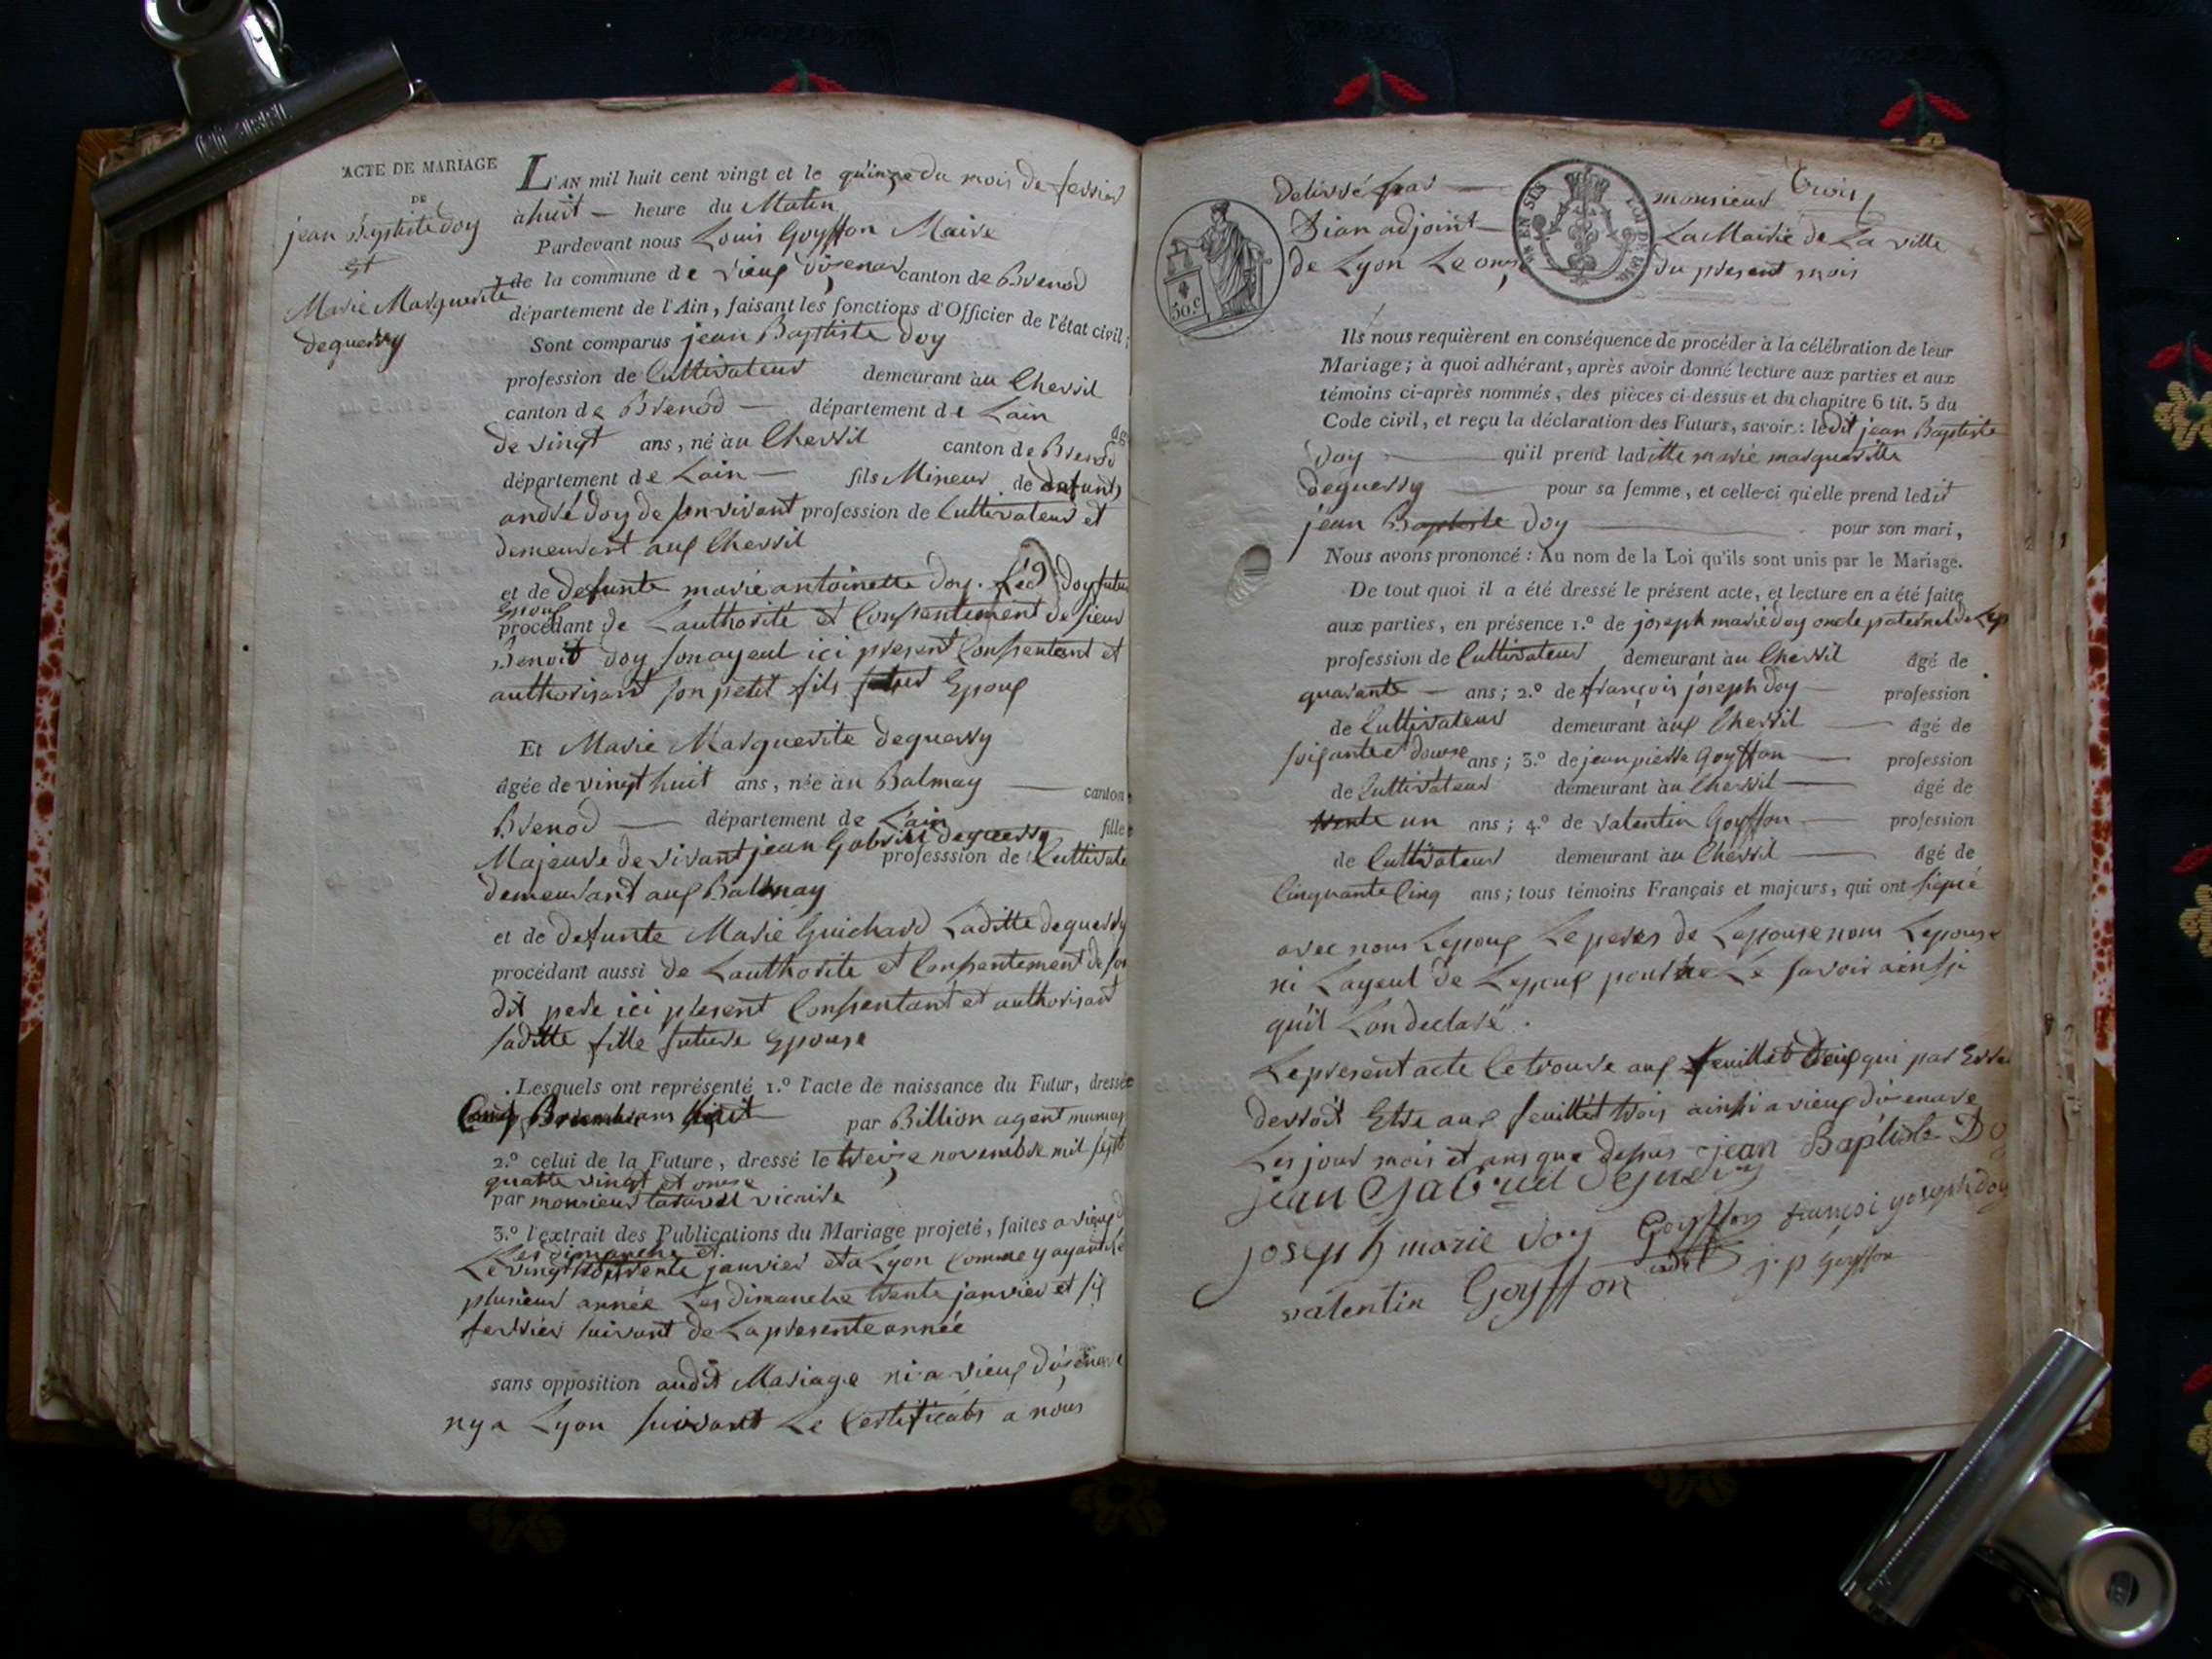 ACTE DE MARIAGE
DE
jean Baptiste Doy
et
Marie Marguerite
deguerry
L'AN mil huit cent vingt et le quinze du mois de fevrier
à huit — heure du Matin
Pardevant nous Louis Goyffon Maire
de la commune de vieux d'izenave canton de Brenod
département de l'Ain, faisant les fonctions d'Officier de l'état civil;
Sont comparus jean Baptiste Doy
profession de Cultivateur demeurant àu Chevril
canton de Brenod — département de Lain
de vingt ans, né àu Chevril canton de Brenod
département de Lain — fils Mineur de defunts
andré doy de son vivant profession de Cultivateur et
demeurant aux Chevril
et de defunte marie antoinette Doy. Led. Doy futur
Epoux
procédant de Lauthorité et Consentement de sieur
Benoit Doy son ayeul ici present Consentant et
authorisant son petit fils futur Epoux
Et Marie Marguerite deguerry
âgée de vingt huit ans, née àu Balmay — canton
Brenod — département de L'ain fille
Majeure de vivant jean Gabriel deguerry profession de Cultivate
demeurant aux Balmay
et de defunte Marie Guichard Laditte deguerry
procédant aussi de Lauthorite et Consentement de son
dit pere ici present Consentant et authorisant
saditte fille future Epouse
Lesquels ont représenté 1.º l'acte de naissance du Futur, dressé
Brumaire ans huit par Billion agent
2.º celui de la Future, dressé le treize novembre mil sept
quatre vingt et onze
par monsieur vicaire
3.º l'extrait des Publications du Mariage projeté, faites a vieux d
Les dimanche et
Le vingt trente janvier et a Lyon Comme y ayant
plusieur année Les dimanche trente janvier et six
fevrier suivant de La presente année
sans opposition audit Mariage ni a vieux d'izenave
ny a Lyon suivant Le Certificats a nous
trois
delivré par — monsieur
Dian adjoint — La Mairie de La ville
de Lyon Le onze du present mois
50.c
EN SUS
LOI DE 1816
Ils nous requièrent en conséquence de procéder à la célébration de leur
Mariage; à quoi adhérant, après avoir donné lecture aux parties et aux
témoins ci-après nommés, des pièces ci-dessus et du chapitre 6 tit. 5 du
Code civil, et reçu la déclaration des Futurs, savoir: ledit jean Baptiste
Doy — qu'il prend laditte marie marguerite
deguerry — pour sa femme, et celle-ci qu'elle prend ledit
jean Baptiste Doy — pour son mari,
Nous avons prononcé: Au nom de la Loi qu'ils sont unis par le Mariage.
De tout quoi il a été dressé le présent acte, et lecture en a été faite
aux parties, en présence 1.º de joseph marie doy oncle paternel de Lep
profession de Cultivateur demeurant àu Chevril âgé de
quarante — ans; 2.º de françois joseph Doy — profession
de Cultivateur demeurant àux Chevril — âgé de
soixante et douze ans; 3.º de jean pierre Goyffon — profession
de Cultivateur demeurant àu Chevril — âgé de
trente un ans; 4.º de valentin Goyffon — profession
de Cultivateur demeurant àu Chevril — âgé de
Cinquante Cinq ans; tous témoins Français et majeurs, qui ont signé
avec nous Lepoux Le peres de Lepouse non Lepouse
ni Layeul de Lepoux pour ne Le savoir ainsi
quil Lon declaré.
Le present acte Ce trouve aux feuillet deux qui par Erre
devroit Etre aux feuillet trois ainsi a vieux d'izenave
Les jour mois et ans que depus jean Baptiste Do
jean Gabriel deguerry
joseph marie Doy Goyffon francoi joseph doy
valentin Goyffon j.p Goyffon